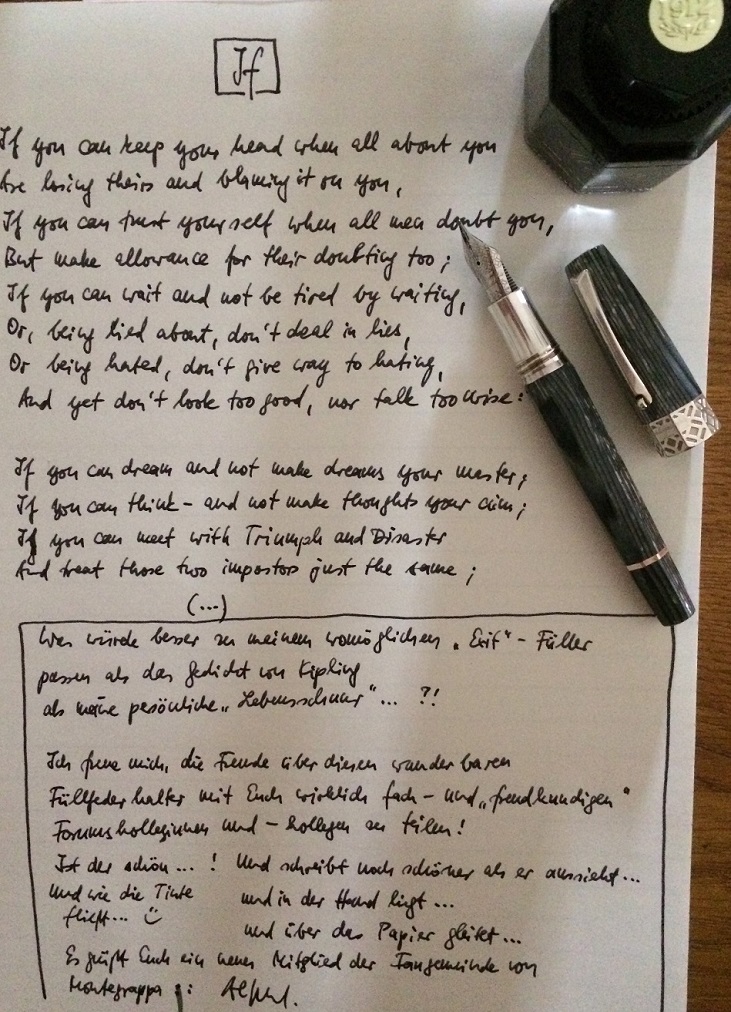 1912
If
If you can keep your head when all about you
Are losing theirs and blaming it on you,
If you can trust yourself when all men doubt you,
But make allowance for their doubting too;
If you can wait and not be tired by waiting,
Or, being lied about, don't deal in lies,
Or being hated, don't give way to hating,
And yet don't look too good, nor talk too wise:
If you can dream and not make dreams your master;
If you can think – and not make thoughts your aim;
If you can meet with Triumph and Disaster
And treat those two impostors just the same;
(...)
Was würde besser zu meinem womöglichen „Exit“-Füller
passen als das Gedicht von Kipling
als meine persönliche „Lebensschnur“... ?!
Ich freue mich, die Freude über diesen wunderbaren
Füllfederhalter mit Euch wirklich fach- und „freudkundigen“
Forumskolleginnen und -kollegen zu teilen!
Ist der schön... ! Und schreibt noch schöner als er aussieht...
Und wie die Tinte und in der Hand liegt...
fließt... und über das Papier gleitet...
Es grüßt Euch ein neues Mitglied der Fangemeinde von
Montegrappa :